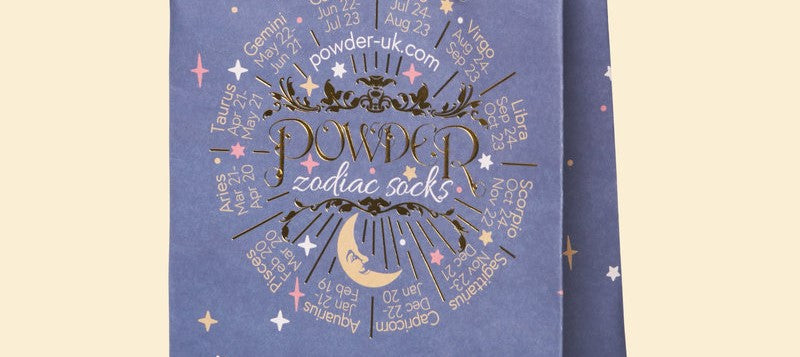 Jun 22-
Jul 23
Jul 24-
Aug 23
Virgo
Aug 24-
Sep 23
Libra
Sep 24-
Oct 23
Scorpio
Oct 24-
Nov 22
Sagittarius
Nov 23-
Dec 21
Capricorn
Dec 22-
Jan 20
Aquarius
Jan 21-
Feb 19
Pisces
Feb 20-
Mar 20
Aries
Mar 21-
Apr 20
Taurus
Apr 21-
May 21
Gemini
May 22-
Jun 21
powder-uk.com
POWDER
zodiac socks